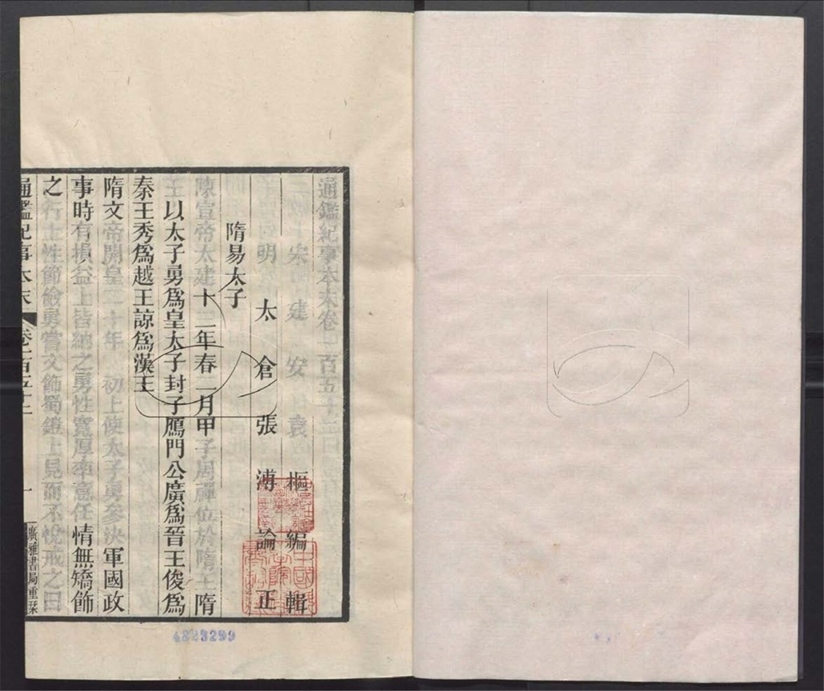 通鑑紀事本末卷一百五十二
宋建安袁樞編輯
明太倉張溥論正
隋易太子
陳宣帝太建十三年春二月甲子周禪位於隋王隋
王以太子勇爲皇太子封子鴈門公廣爲晉王俊爲
秦王秀爲越王諒爲漢王
隋文帝開皇二十年初上使太子勇參決軍國政
事時有損益上皆納之勇性寬厚率意任情無矯飾
之行上性節儉勇嘗文飾蜀鎧上見而不悅戒之曰
通鑑紀事本末 卷一百五十二 一 廣雅書局重栞
4823299